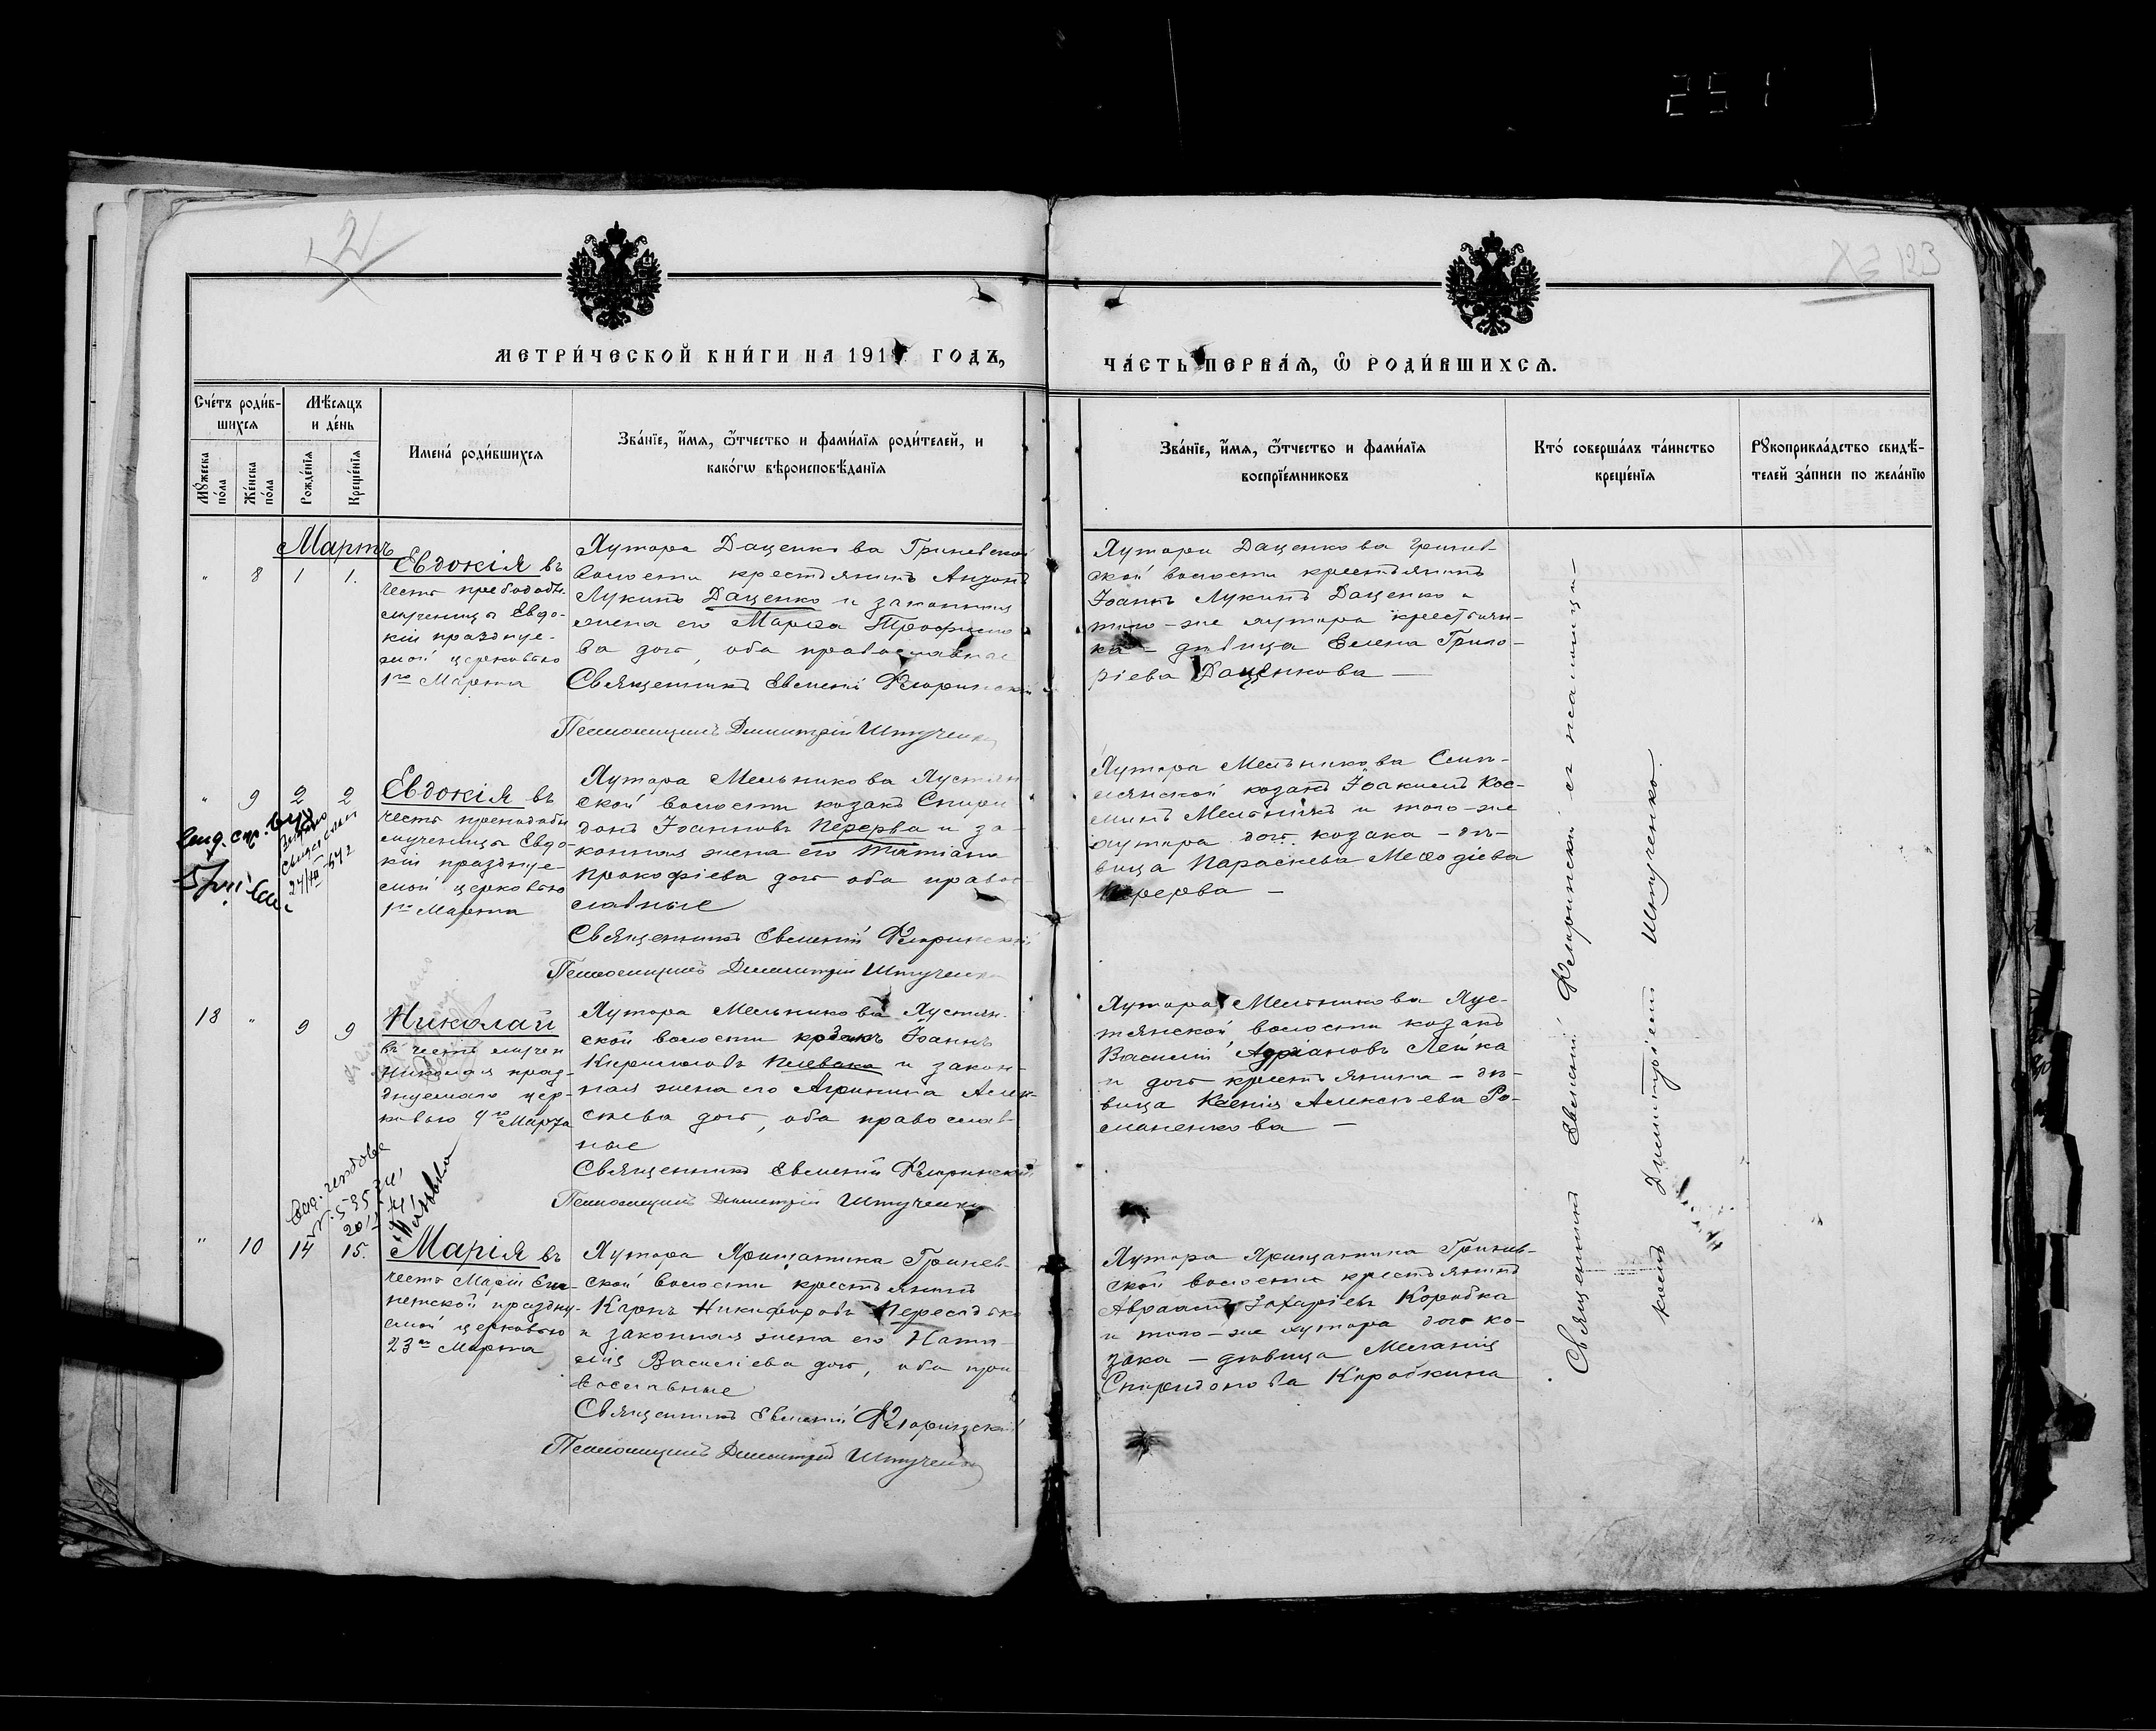 251
123
МЕТРИ́ЧЕСКОЙ КНИ́ГИ НА 191 ГОДЪ,
ЧА́СТЬ ПЕРВА́Ѧ, Ѽ РОДИ́ВШИХСѦ.
Сче́тъ роди́в-
шихсѧ
Мꙋ́жеска по́ла
Же́нска по́ла
Мѣ́сѧцъ
и де́нь
Рожде́нїѧ
Креще́нїѧ
Имена̀ роди́вшихсѧ
Зва́нїе, и҆́мѧ, ѻ҆́тчество и фами́лїѧ роди́телей, и
како́гѡ вѣроисповѣ́данїѧ
Зва́нїе, и҆́мѧ, ѻ҆́тчество и фами́лїѧ
воспрїе́мниковъ
Кто̀ соверша́лъ та́инство
креще́нїѧ
Рꙋкоприкла́дство свидѣ́-
телей за́писи по жела́нїю
Мартъ
" 8 1 1.
Евдокія въ
честь преподобн.
мученицы Евдо-
кіи празднуе-
мой церковью
1го Марта
Хутора Даценкова Гриневской
волости крестьянинъ Антонъ
Лукинъ Даценко и законная
жена его Марѳа Трофимо
ва дочь, оба православные
Священникъ Евменій Флоринскій
Псаломщикъ Димитрій Штученко
Хутора Даценкова Гринев-
ской волости крестьянинъ
Іоаннъ Лукинъ Даценко и
того-же хутора крестьян-
ка - дѣвица Елена Григо-
ріева Даценкова —
" 9 2 2
Евдокія въ
честь преподобн
мученицы Евдо-
кіи празднуе-
мой церковью
1го Марта
Хутора Мельникова Хустян
ской волости козакъ Спири
донъ Іоанновъ Перерва и за-
конная жена его Татіана
Прокофіева дочь оба право
славные
Священникъ Евменій Флоринскій
Псаломщикъ Димитрій Штученко
Хутора Мельникова
козакъ Іоакимъ Кос-
минъ Мельникъ и того-же
хутора дочь козака - дѣ-
вица Параскева Меѳодіева
Перерва —
18 " 9 9
Николай
въ честь мучен
Николая празд-
днуемаго цер-
ковью 9го Марта
Хутора Мельникова Хустян-
ской волости козакъ Іоаннъ
Кирилловъ Плевака и закон-
ная жена его Агрипина Алек-
сѣева дочь, оба православ-
ные
Священникъ Евменій Флоринскій
Псаломщикъ Димитрій Штученко
Хутора Мельникова Хус-
тянской волости козакъ
Василій Адріановъ Лейка
и дочь крестьянина - дѣ-
вица Ксенія Алексѣева Ро-
маненкова —
" 10 14 15.
Марія въ
честь Маріи Еги-
петской праздну-
емой церковью
23го Марта
Хутора Ярещатика Гринев-
ской волости крестьянинъ
Карпъ Никифоровъ Пересадько
и законная жена его Ната-
лія Василіева дочь, оба пра
вославные
Священникъ Евменій Флоринскій
Псаломщикъ Димитрій Штученко
Хутора Ярещатика Гринев-
ской волости крестьянинъ
Авраамъ Захаріевъ Коробка
и того-же хутора дочь ко-
зака - дѣвица Меланія
Спиридонова Коробкина
Священникъ Евменій Флоринскій съ псаломщи-
комъ Димитріемъ Штученко.